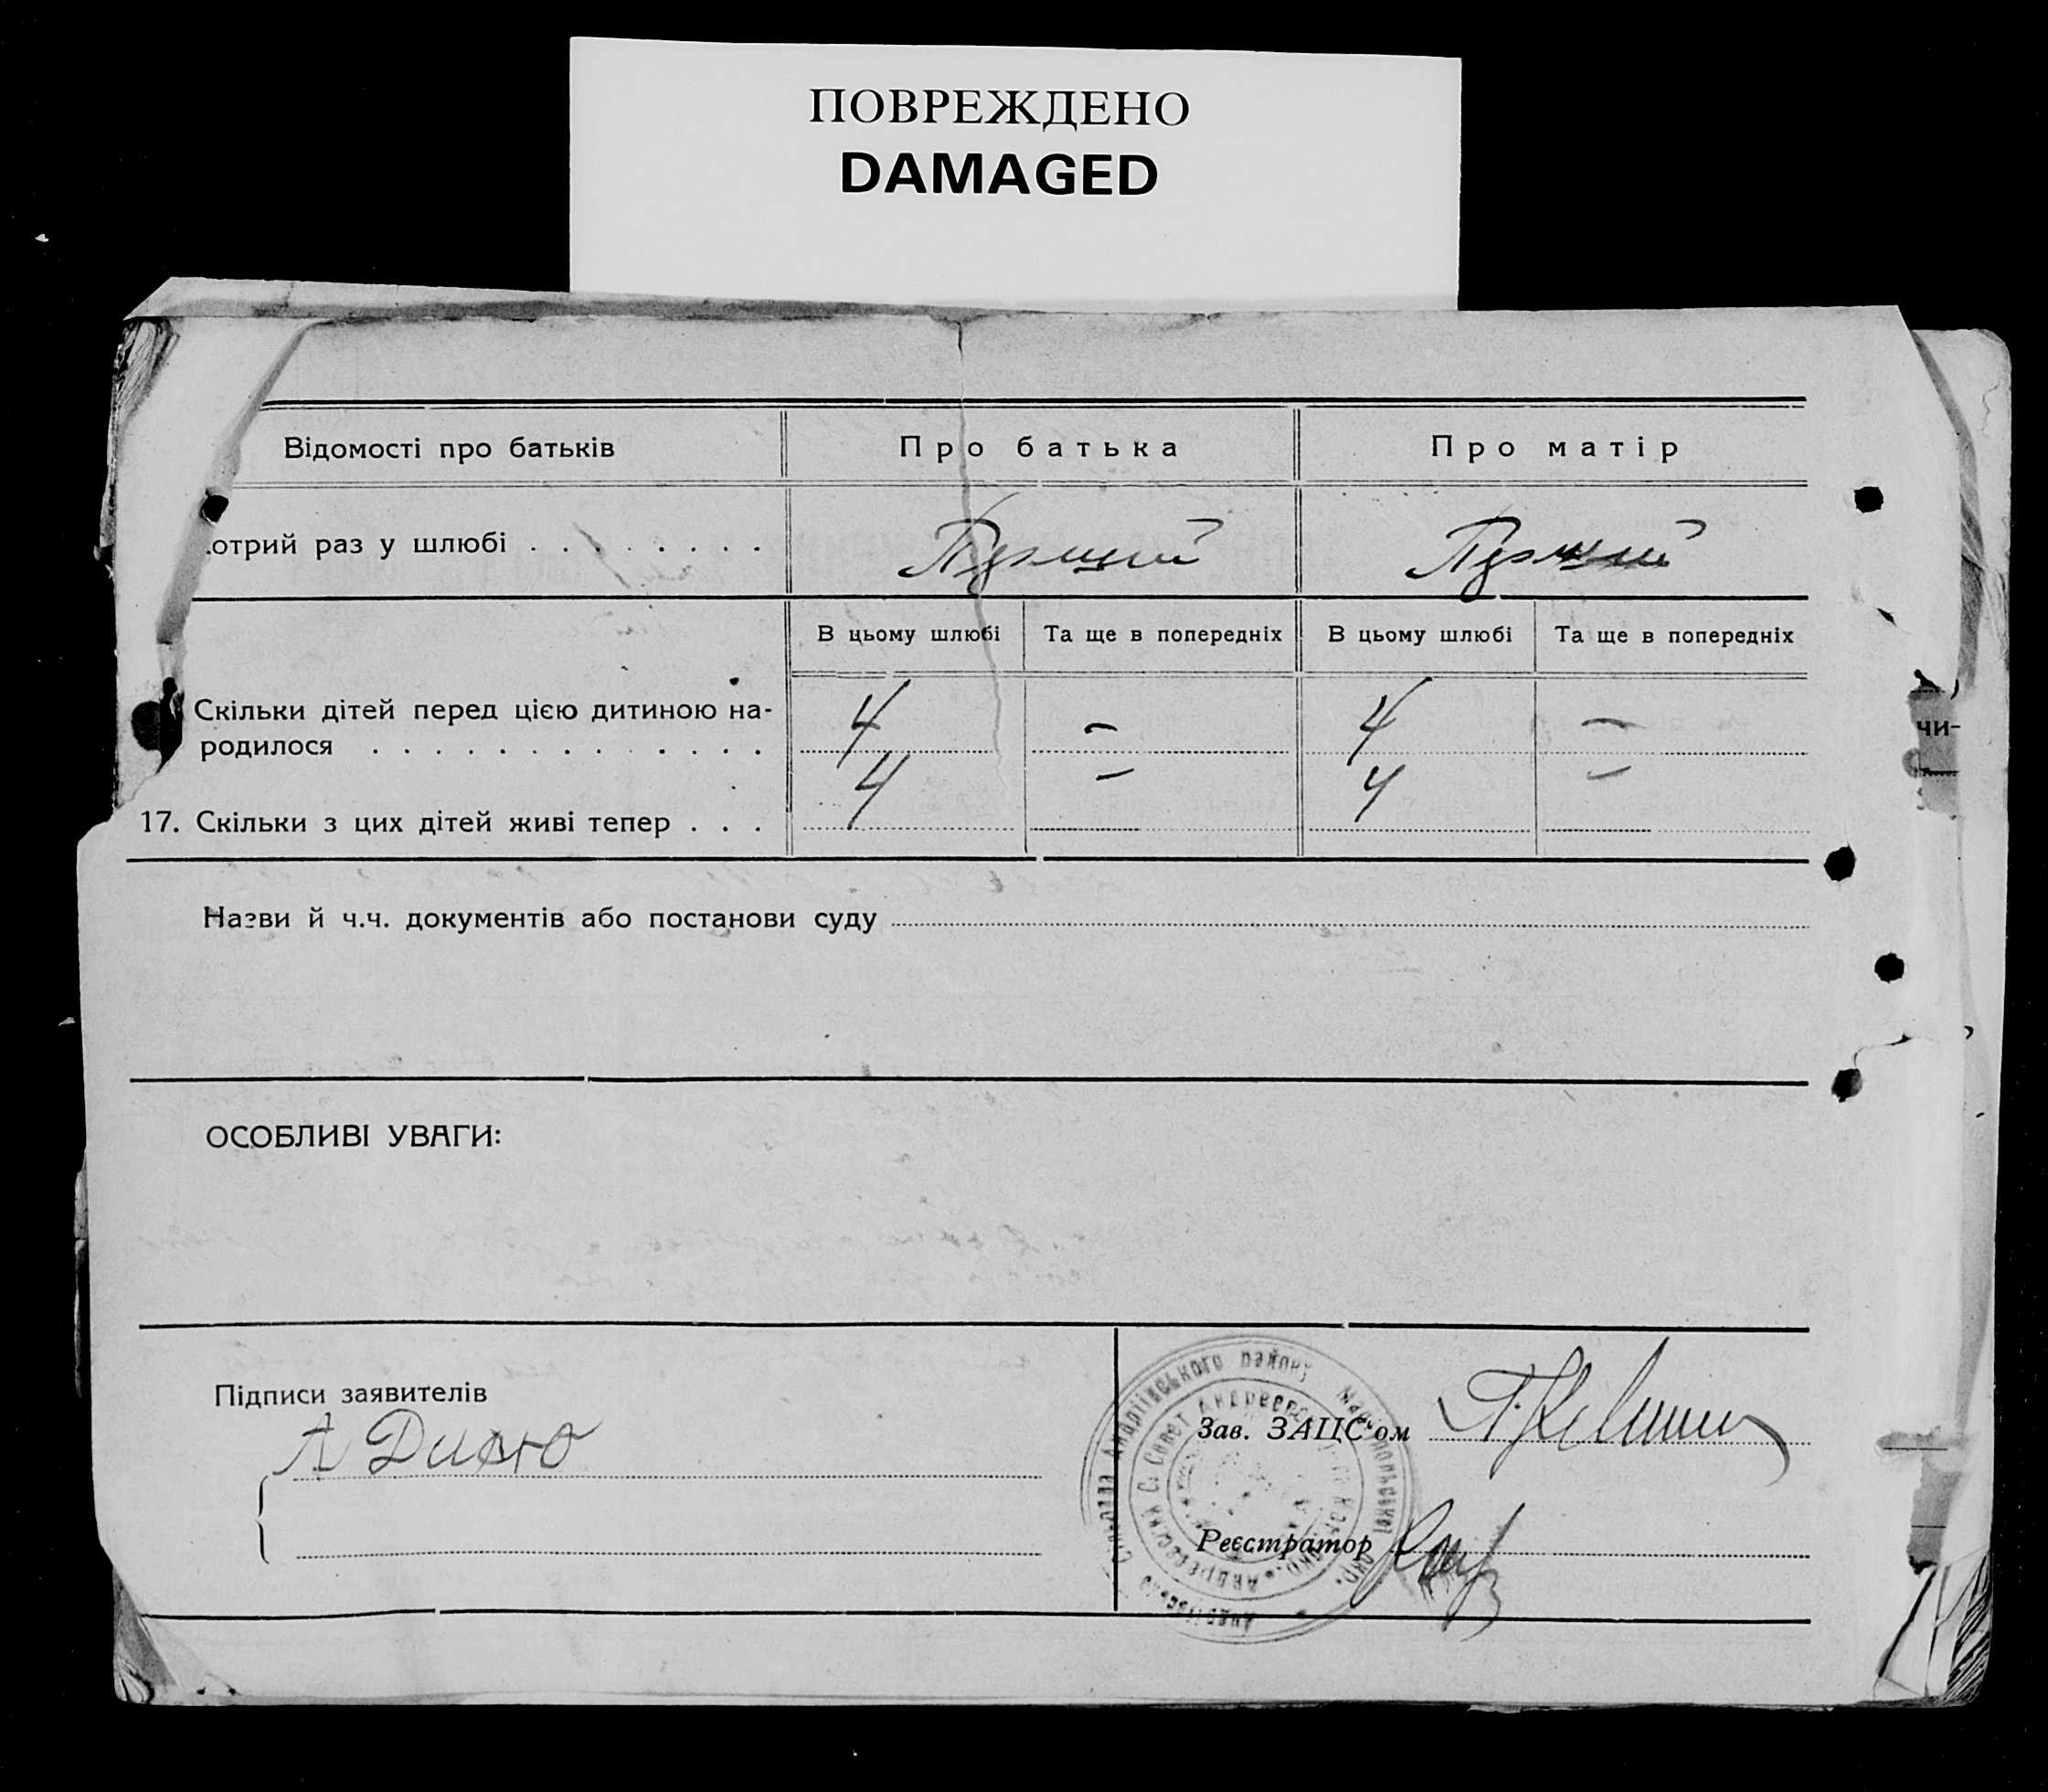 ПОВРЕЖДЕНО
DAMAGED
Відомості про батьків
Про батька
Про матір
отрий раз у шлюбі . . . . . . . .
Перший
Перший
В цьому шлюбі
Та ще в попередніх
В цьому шлюбі
Та ще в попередніх
Скільки дітей перед цією дитиною на-
родилося . . . . . . . . . . . . .
4 – 4 –
17. Скільки з цих дітей живі тепер . . .
4 – 4 –
чи-
Назви й ч.ч. документів або постанови суду
ОСОБЛИВІ УВАГИ:
Підписи заявителів
Зав. ЗАЦС'ом
Реєстратор
Андріївського району Маріюпольської окр.